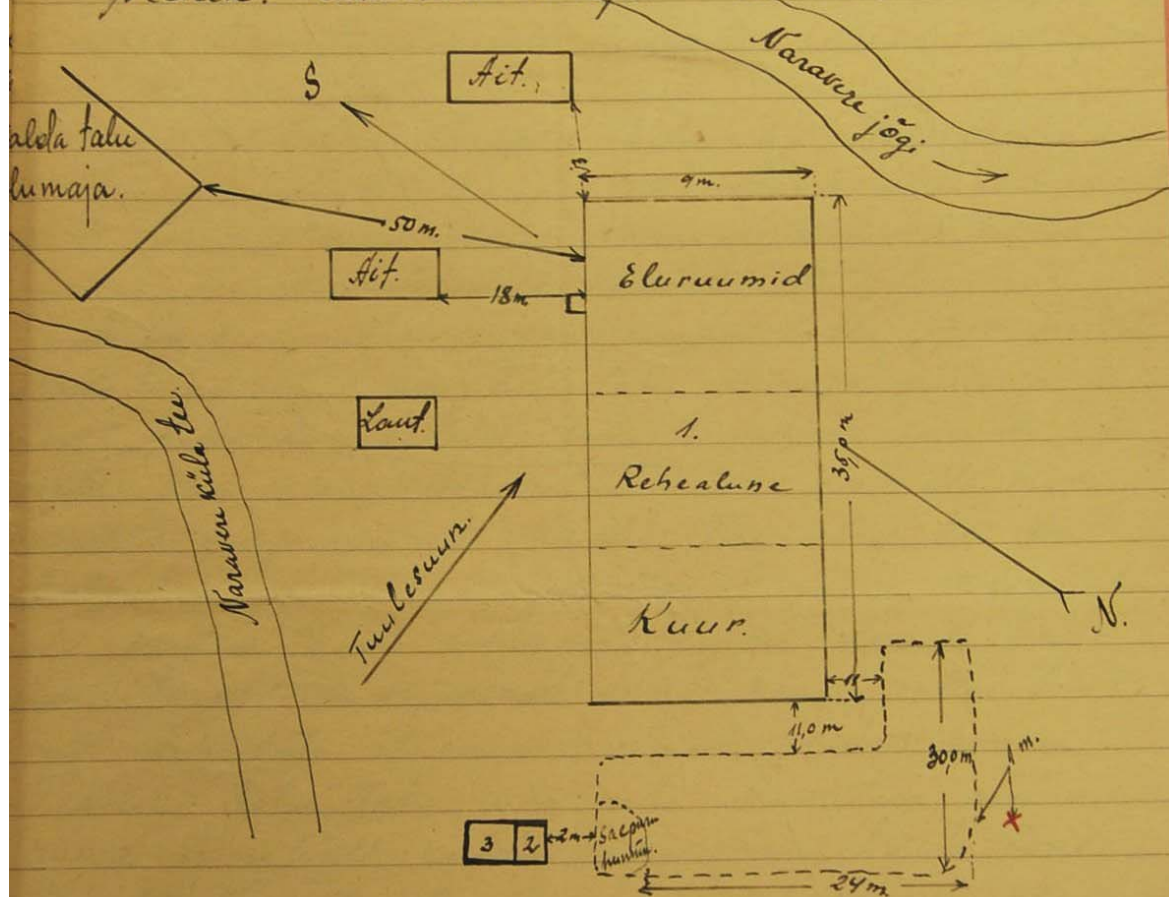 Ait.
S
Naravere jõgi
alda talu
lumaja.
9m.
50m.
Ait.
18m.
Eluruumid
Laut.
1.
Rehealune
35,0m
Naravere küla tee.
Tuulesuun.
Kuur.
N.
11,0m
30,0m
1m.
3
2
2m
24m.